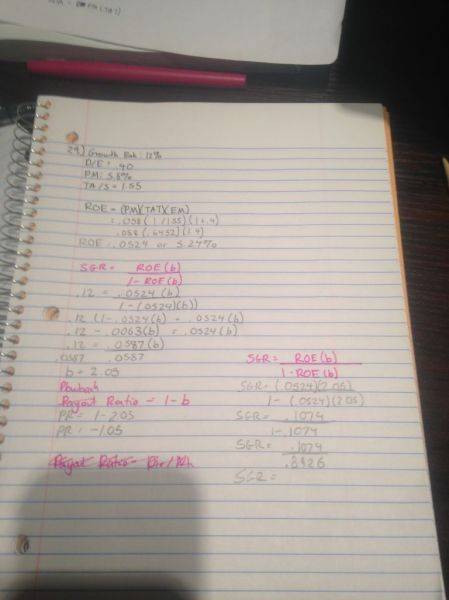 29.) Growth Rate: 12%
D/E: .40
PM: 5.8%
TA/S = 1.55
ROE = (PM)(TAT)(EM)
= .058 (1/1.55)(1+.4)
.058 (.6452)(1.4)
ROE = .0524 or 5.24%
SGR = ROE(b)
1-ROE(b)
.12 = .0524(b)
1-(.0524)(b))
.12 (1-.0524(b) = .0524(b)
.12 - .0063(b) = .0524(b)
.12 = .0587(b)
.0587 .0587
b = 2.05
Payout Ratio = 1-b
PR = 1-2.05
PR = -1.05
Payout Ratio =
SGR = ROE(b)
1-ROE(b)
SGR = (.0524)(2.05)
1-(.0524)(2.05)
SGR = .1074
1-.1074
SGR = .1074
.8926
SGR =